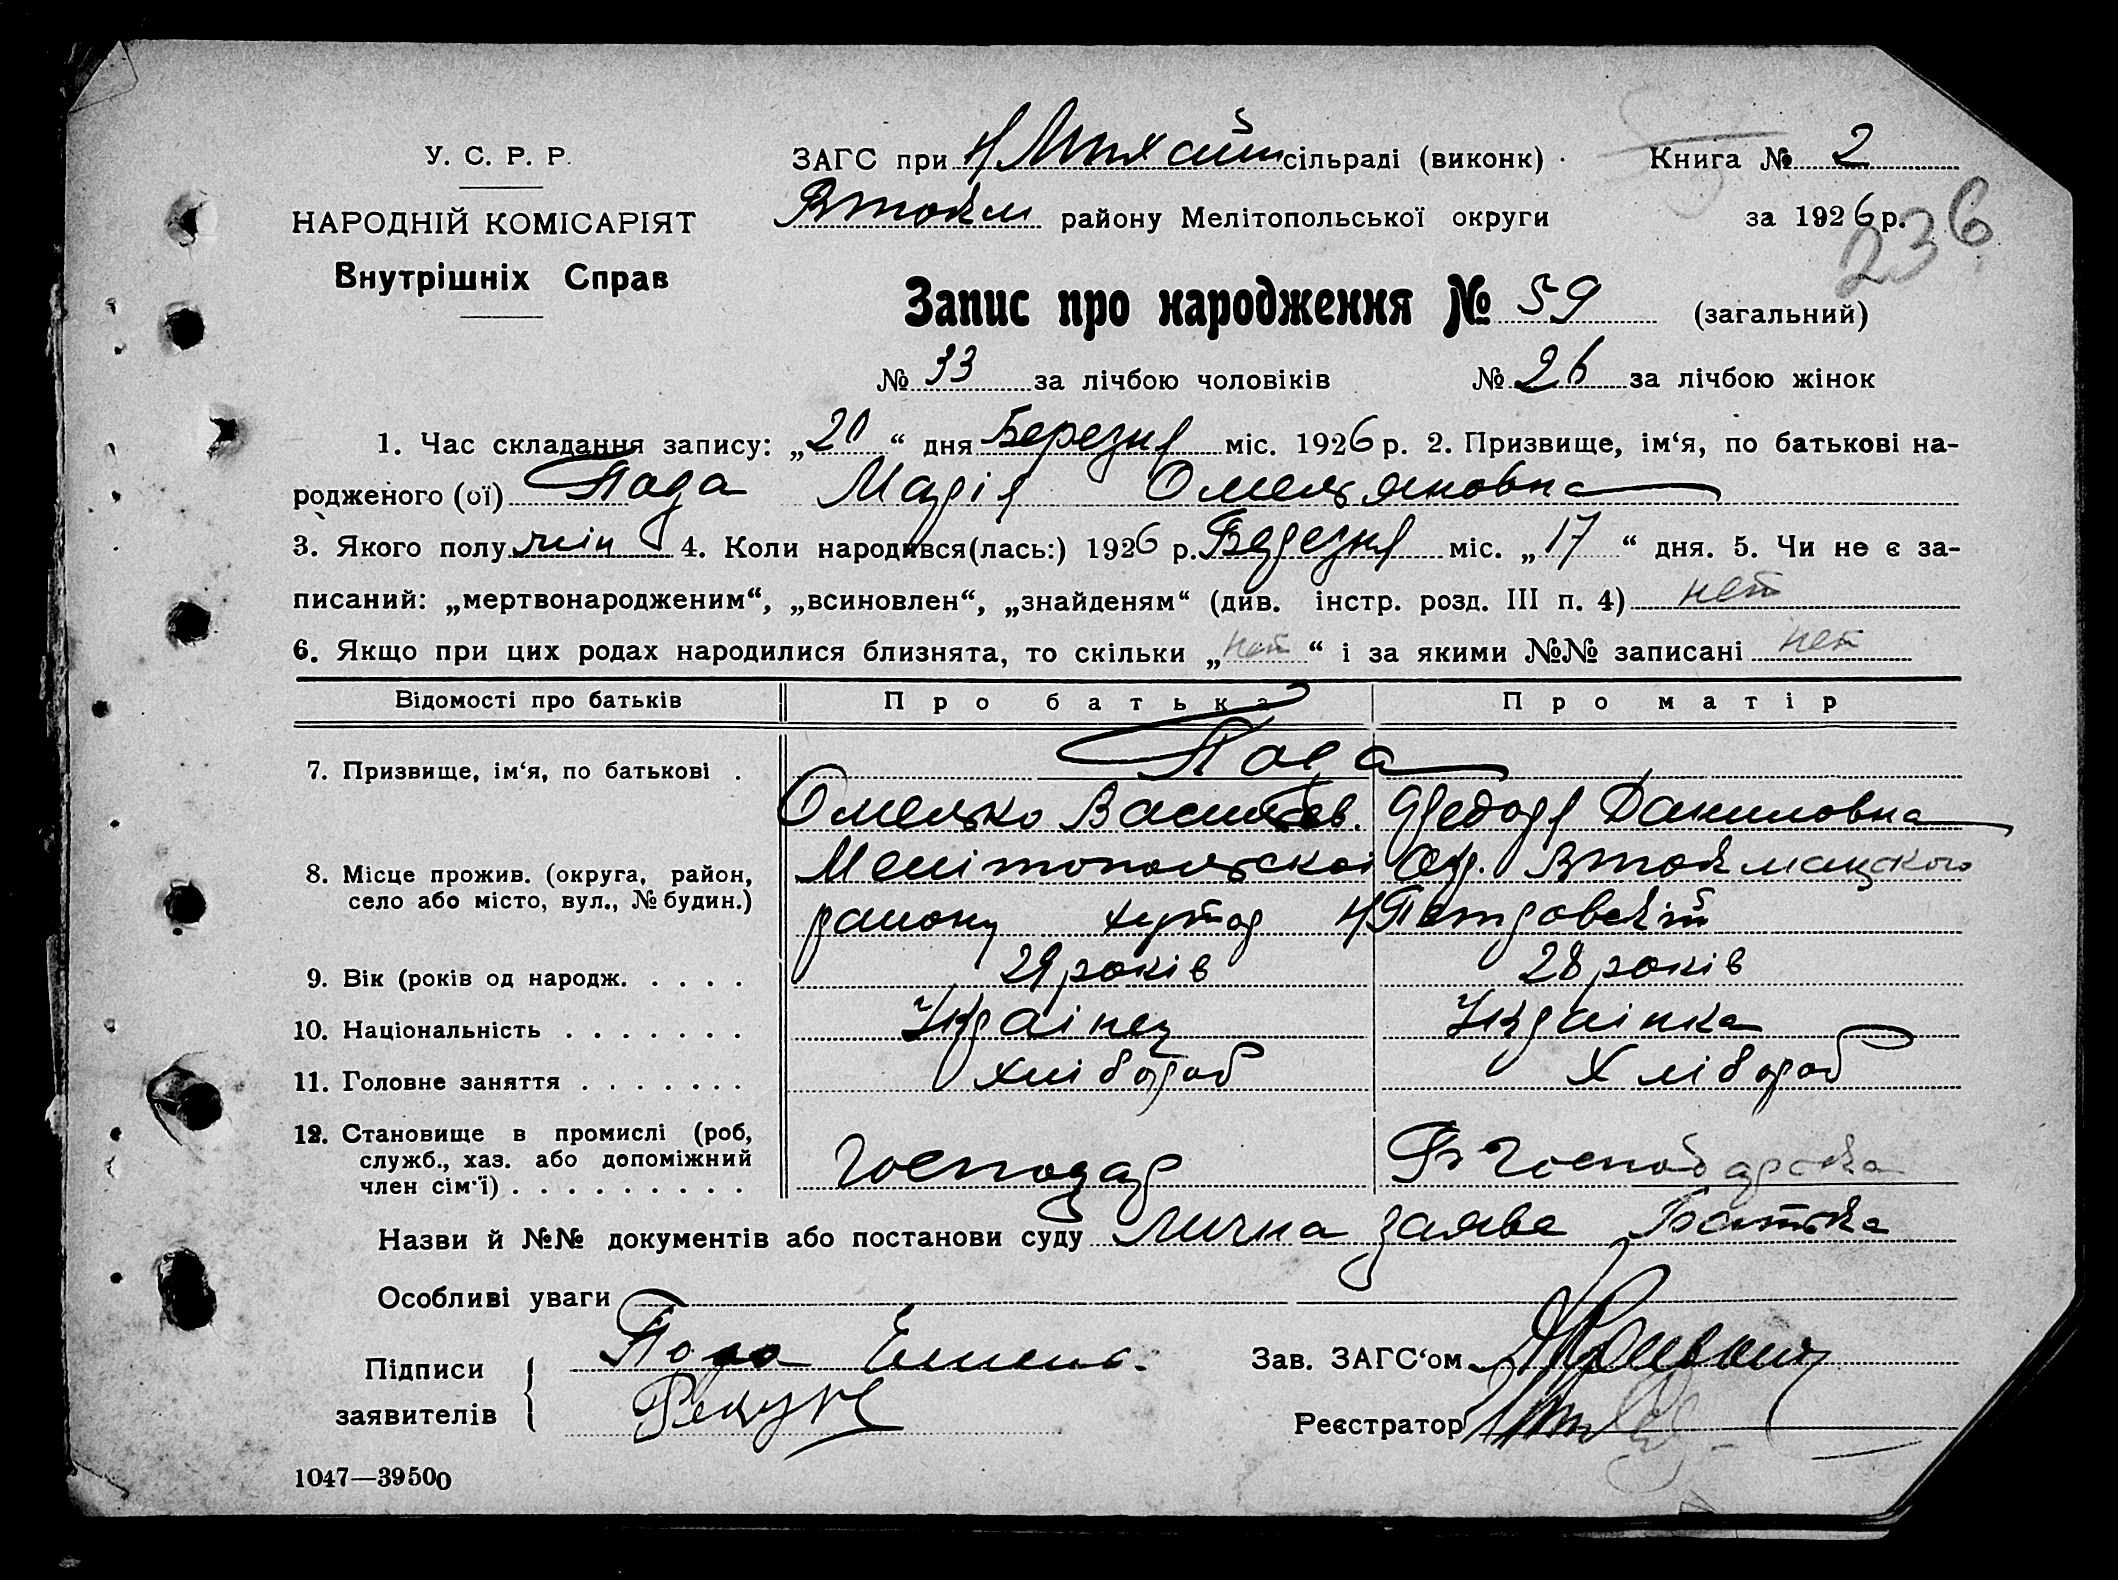 У. С. Р. Р.
НАРОДНІЙ КОМІСАРІЯТ
Внутрішніх Справ
ЗАГС при Н Михай сільраді (виконк)
Книга № 2
Втокм району Мелітопольської округи
за 1926 р.
236
Запис про народження № 59 (загальний)
№ 33 за лічбою чоловіків № 26 за лічбою жінок
1. Час складання запису: „20“ дня Березня міс. 1926 р. 2. Призвище, ім‘я, по батькові на-
родженого (ої) Пада Марія Омельяновна
3. Якого полу жін 4. Коли народився(лась:) 1926 р. Березня міс. „17“ дня. 5. Чи не є за-
писаний: „мертвонародженим“, „всиновлен“, „знайденям“ (див. інстр. розд. III п. 4) нет
6. Якщо при цих родах народилися близнята, то скільки „нет“ і за якими №№ записані нет
Відомості про батьків Про батька Про матір
7. Призвище, ім‘я, по батькові . Пада
Омелько Васильев. Федора Даниловна
8. Місце прожив. (округа, район, Мелітопольскоі Окр. Втокмацкого
село або місто, вул., № будин.) району хутор Н Петровскій
9. Вік (років од народж. . . . . 29 років 28 років
10. Національність . . . . . . . Украінец Украінка
11. Головне заняття . . . . . . . хлібороб Хлібороб
12. Становище в промислі (роб,
служб., хаз. або допоміжний Господар Господарка
член сім‘ї) . . . . . . . . .
Назви й №№ документів або постанови суду Лична заява Батька
Особливі уваги
Підписи Пада Емельс.
заявителів
Зав. ЗАГС‘ом
Реєстратор
1047—39500